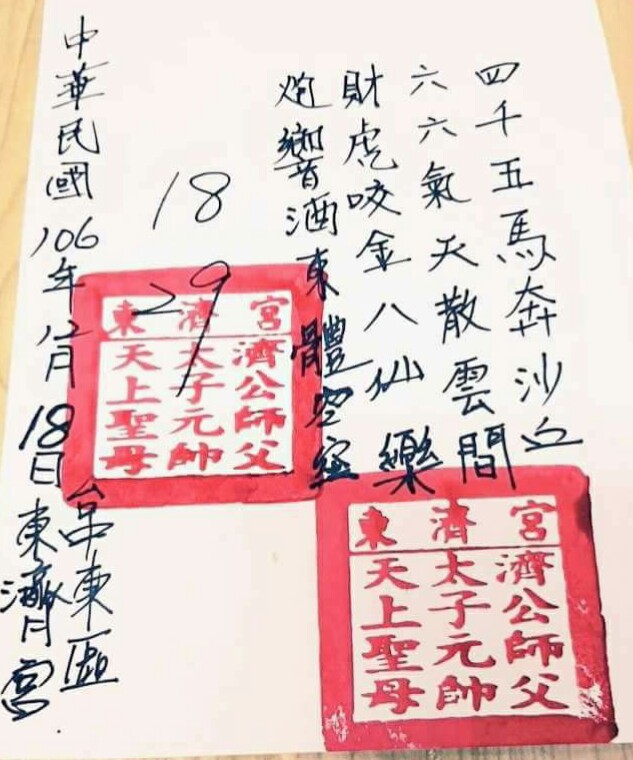 四千五馬奔沙丘
六六氣天散雲間
財虎咬金八仙樂
炮響酒東體空
18
29
中華民國106年12月18日
台東區
東濟宮
東濟宮
濟公師父
太子元帥
天上聖母
東濟宮
濟公師父
太子元帥
天上聖母